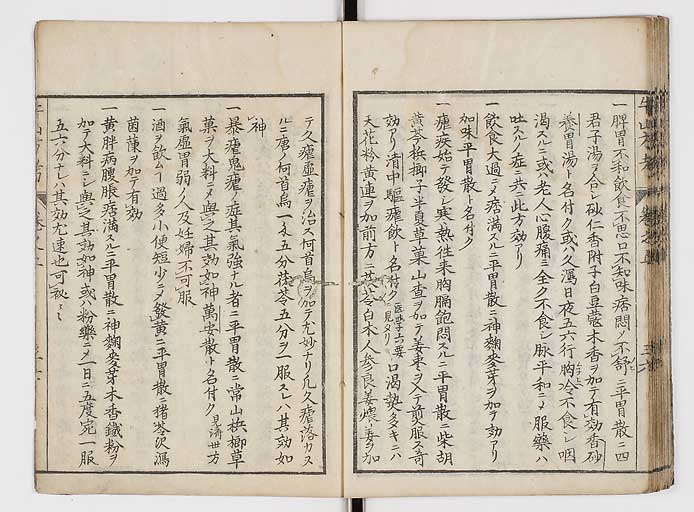 一脾胃不和飲食不思口不和味痞悶ノ不舒ニ平胃散ニ四
君子湯ヲ合シ砂仁香附子白豆蔻木香ヲ加テ有効香砂
養胃湯ト名付ク或ハ久瀉日夜五六行胸冷不食シ咽
渇スルニ或ハ老人心腹痛ニ全ク不食シ脉平和ニメ服藥ハ
吐スルノ症ニ共ニ此方効アリ
一飲食大過ニメ痞満スルニ平胃散ニ神麯麥芽ヲ加テ効アリ
加味平胃散ト名付ク
一瘧疾始テ發シ寒熱往来胸膈飽悶スルニ平胃散ニ柴胡
黄芩梹榔子半夏草菓山査ヲ加テ姜枣ヲ入テ煎服ス奇
効アリ清中驅瘧飲ト名付ク 口渇熱多キニハ
天花粉黄連ヲ加前方ニ茯苓白朮人参良姜煨姜ヲ加
テ久瘧虚瘧ヲ治ス何首烏ヲ加テ尤妙ナリ凡久瘧落カヌ
ルニ唐ノ何首烏一戔五分茯苓五分ヲ一服スレハ其効如
神
一暴瘧鬼瘧ノ症其氣強キナル者ニ平胃散ニ常山梹榔草
菓ヲ大料ニメ與之其効如神萬安散ト名付ク 見済世方
氣虚胃弱ノ人及妊婦不可服
一酒ヲ飲ムー過多小便短少ニメ發黄ニ平胃散ニ猪苓沢瀉
茵蔯ヲ加テ有効
一黄胖病腹脹痞満スルニ平胃散ニ神麯麥芽木香鐵粉ヲ
加テ大料ニシ與之其効如神或ハ粉藥ニメ一日ニ五度宛一服
五六分スレハ其効尤速也可秘〻